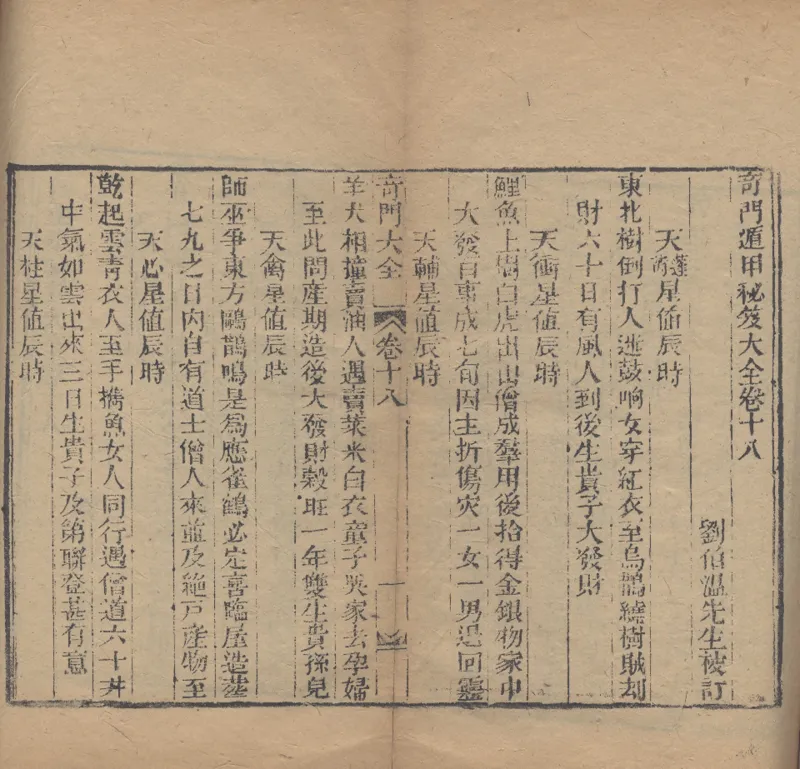 奇門遁甲秘笈大全卷十八
劉伯溫先生校訂
天蓬芮星值辰時
東北樹倒打人逃鼓响女穿紅衣至烏鵲繞樹賊刧
財六十日有風人到後生貴子大發財
天衝星值辰時
鯉魚上樹白虎出山僧成羣用後拾得金銀物家中
大發自事成七旬因主折傷灾一女一男退回靈
天輔星值辰時
奇門大全 卷十八 一
羊犬相撞賣油人遇賣菜米白衣童子哭家去孕婦
至此問產期造後大發財穀旺一年雙生貴孫兒
天禽星值辰時
師巫爭東方鷗鵲鳴是為應雀鶴必定喜臨屋造塟
七九之日內自有道士僧人來並及絶戶產物至
天心星值辰時
乾起雲青衣人至手攜魚女人同行遇僧道六十丼
中氣如雲出來三日生貴子及第聯登甚有意
天柱星值辰時